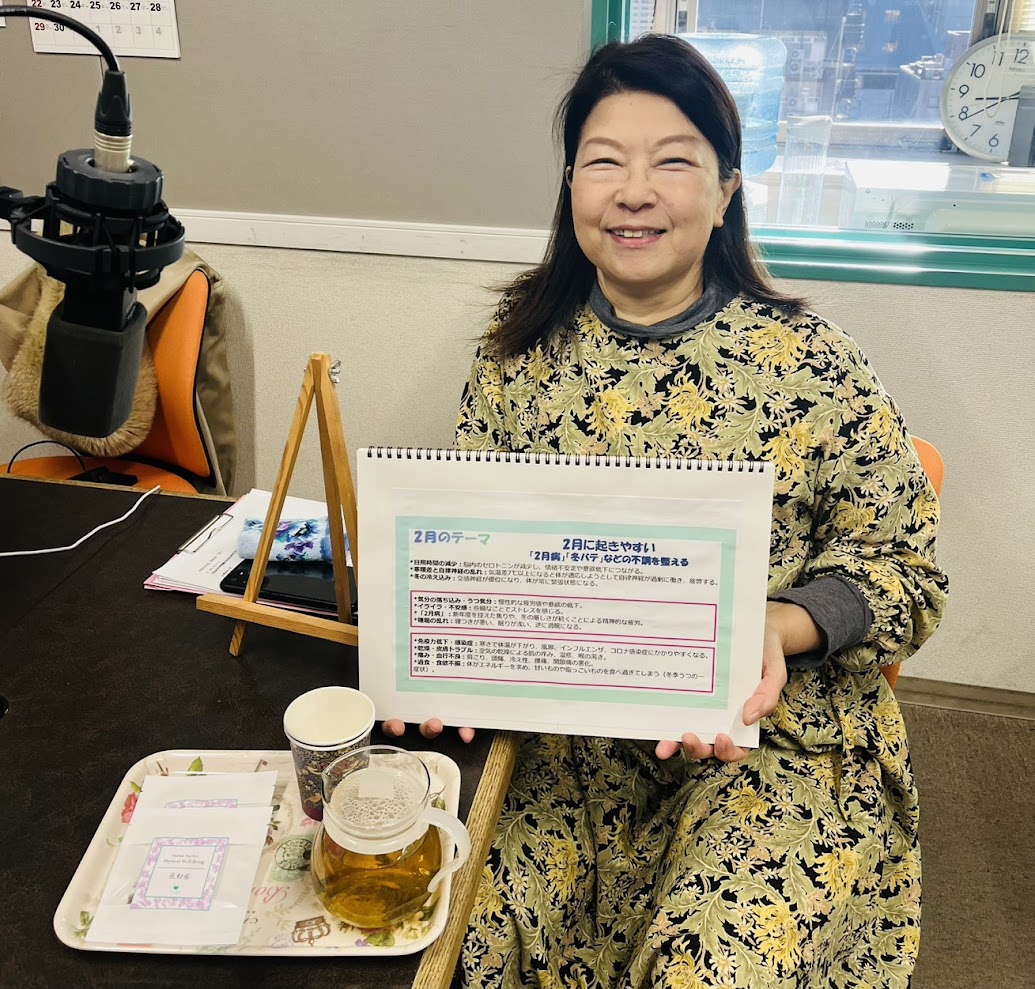 22 23 24 25 26 27 28
29 30 1 2 3 4
12
10
9
8
7
6
2月のテーマ
2月に起きやすい
「2月病」「冬バテ」などの不調を整える
*日照時間の減少：脳内のセロトニンが減少し、情緒不安定や意欲低下につながる。
*寒暖差と自律神経の乱れ：気温差7℃以上になると体が適応しようとして自律神経が過剰に働き、疲弊する。
*冬の冷え込み：交感神経が優位になり、体が常に緊張状態になる。
*気分の落ち込み・うつ気分：慢性的な疲労感や意欲の低下。
*イライラ・不安感：些細なことでストレスを感じる。
*「2月病」：新年度を控えた焦りや、冬の厳しさが続くことによる精神的な疲労。
*睡眠の乱れ：寝つきが悪い、眠りが浅い、逆に過眠になる。
*免疫力低下・感染症：寒さで体温が下がり、風邪、インフルエンザ、コロナ感染症にかかりやすくなる。
*乾燥・皮膚トラブル：空気の乾燥による肌の痒み、湿疹、喉の渇き。
*痛み・血行不良：肩こり、頭痛、冷え性、腰痛、関節痛の悪化。
*過食・食欲不振：体がエネルギーを求め、甘いものや脂っこいものを食べ過ぎてしまう（冬季うつの一
症状）。
Physical Well-Being
花粉症